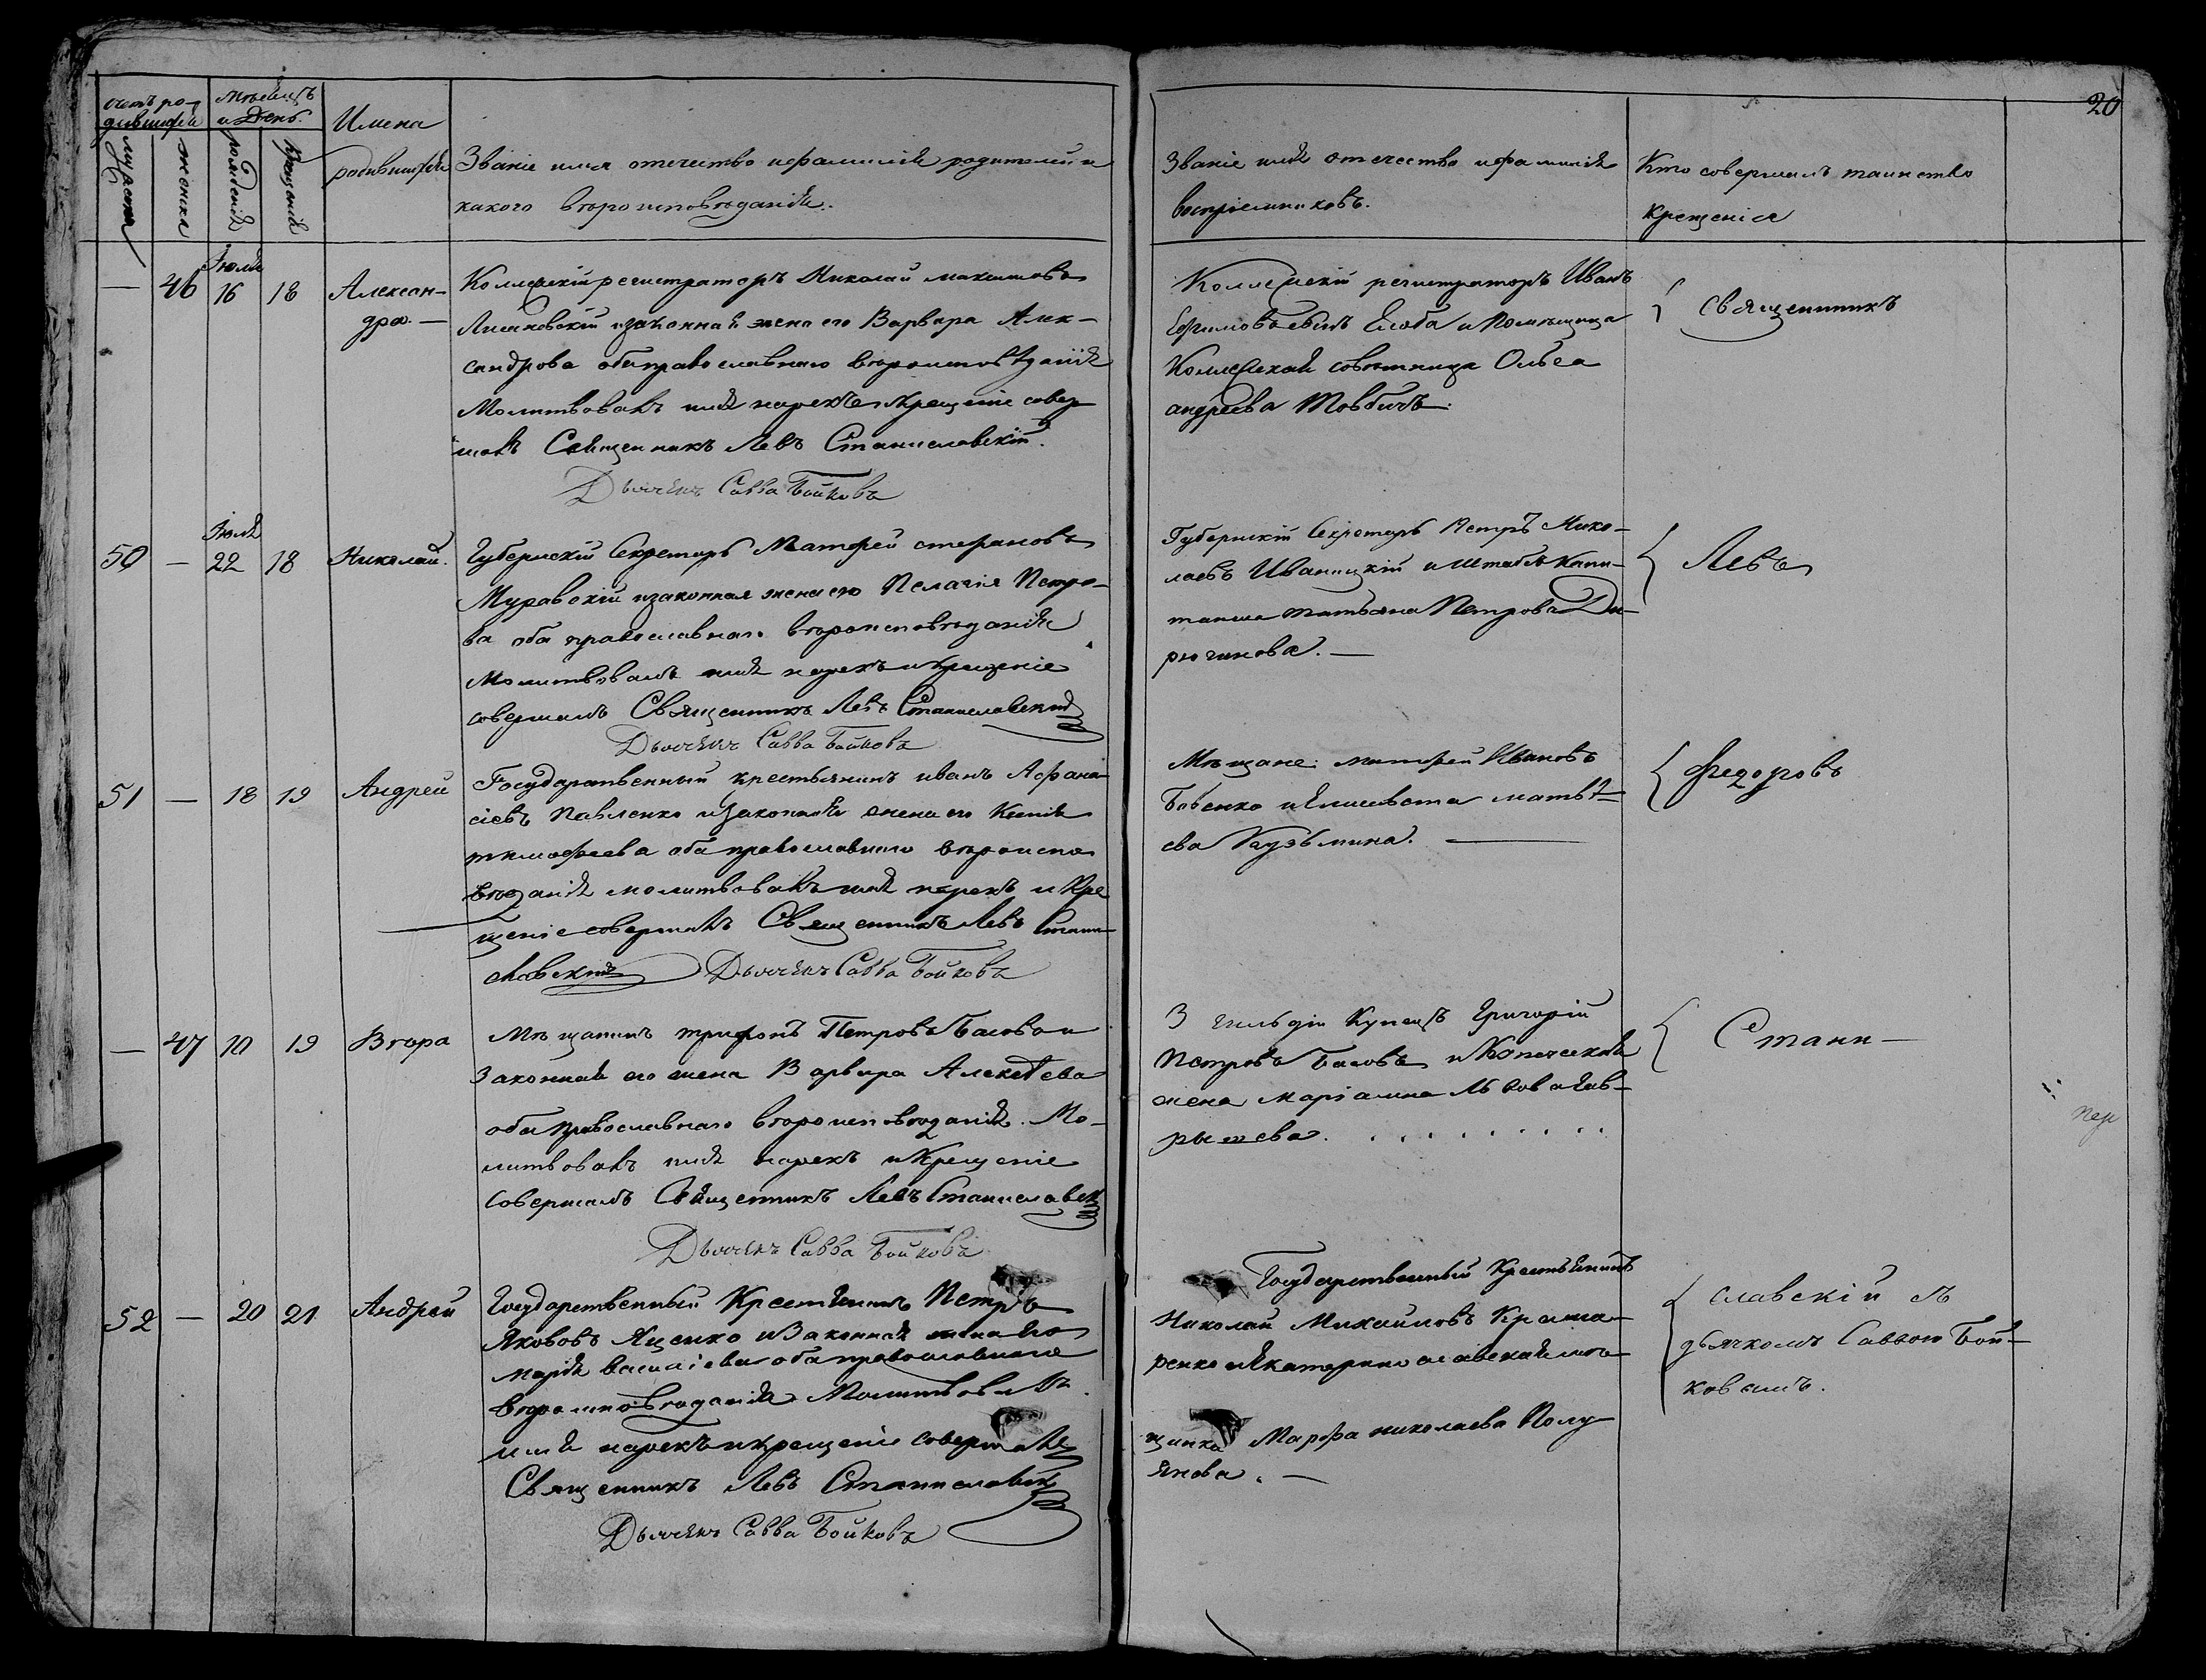 20
счетъ ро-
дившихся
мѣсяцъ
и День.
Имена
родившихся
мужеска
женска
рожденія
крещенія
Званіе имя отечество и фамилія родителей и
какого вѣроисповѣданія.
Званіе имя отечество и фамилія
воспріемниковъ.
Кто совершалъ таинство
крещенія
— 46
Іюля
16 18
Алексан-
дра. —
Коллежскій регистраторъ Николай Максимовъ
Лисановскій и законная жена его Варвара Алек-
сандрова оба православнаго вѣроисповѣданія
Молитвовалъ имя нарекъ и крещеніе совер
шалъ Священникъ Левъ Станиславскій.
Дьячекъ Савва Бойковъ
Коллежскій регистраторъ Иванъ
Ефимовъ и Помѣщица
Коллежская совѣтница Ольга
андреева Товбичъ.
Священникъ
50 —
Іюля
22 18
Николай.
Губернскій Секретарь Матфей стефановъ
Муравскій и законная жена его Пелагія Петро-
ва оба православнаго вѣроисповѣданія
Молитвовалъ имя нарекъ и крещеніе
совершалъ Священникъ Левъ Станиславскій
Дьячекъ Савва Бойковъ
Губернскій Секретарь Петръ Нико-
лаевъ Иваницкій и Штабсъ Капи-
танша татьяна Петрова Ди-
рючинова. —
Левъ
51 — 18 19
Андрей
Государственный крестьянинъ иванъ Афана
сіевъ Павленко и законная жена его Ксенія
тимофеева оба православнаго вѣроиспо
вѣданія молитвовалъ имя нарекъ и Кре
щеніе совершалъ Священникъ Левъ Стани-
славскій Дьячекъ Савва Бойковъ
Мѣщане: матфей Ивановъ
Бабенко и Елисавета матвѣ-
ева Кузьмина. —
Федоровъ
— 47 10 19
Вѣра
Мѣщанинъ трифонъ Петровъ Басовъ и
Законная его жена Варвара Алексѣева
оба православнаго вѣроисповѣданія. Мо-
литвовалъ имя нарекъ и Крещеніе
совершалъ Священникъ Левъ Станиславск
Дьячекъ Савва Бойковъ
3 гильдіи Купецъ Григорій
Петровъ Басовъ и Купеческая
жена маріамна Львова Гав-
рышева.
Стани-
52 — 20 21
Андрей
Государственный Крестьянинъ Петръ
Якововъ Яценко и Законная жена его
марія василіева оба православнаго
вѣроисповѣданія Молитвовалъ
имя нарекъ и крещеніе совершалъ
Священникъ Левъ Станиславск
Дьячекъ Савва Бойковъ
Государственный Крестьянинъ
Николай Михайловъ Крама-
ренко и Екатеринославская мѣ-
щанка Марфа николаева Полу-
янова. —
славскій съ
дьячкомъ Саввою Бой-
ковымъ.